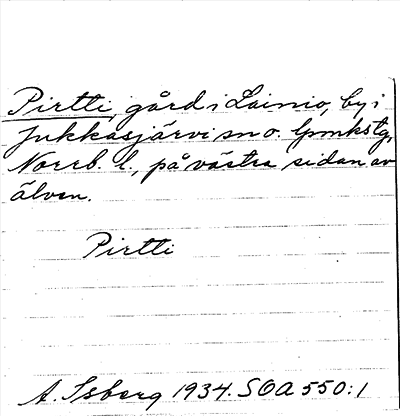 Pirtti, gård i Lainio, by i
Jukkasjärvi sn o. lpmkstg,
Norrb. l., på västra sidan av
älven.
Pirtti
A. Isberg 1934. SOA 550:1